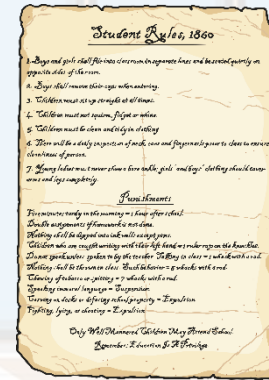 Student Rules, 1860
1. Boys and girls shall file into classroom in separate lines and be seated quietly on
opposite sides of the room.
2. Boys shall remove their caps when entering.
3. Children must sit up straight at all times.
4. Children must not squirm, fidget or whine.
5. Children must be clean and tidy in clothing
6. There will be a daily inspection of neck, ears and fingernails prior to class to ensure
cleanliness of person.
7. Young ladies must never show a bare ankle; girls' and boys' clothing should cover
arms and legs completely.
Punishments
Five minutes tardy in the morning = 1 hour after school.
Double assignments if homework is not done.
Nothing shall be dipped into ink wells except pens.
Children who are caught writing with their left hand = ruler rap on the knuckles.
Do not speak unless spoken to by the teacher. Talking in class = whack with rod.
Nothing shall be thrown in class. Such behavior = 5 whacks with rod.
Chewing of tobacco or spitting = 7 whacks with rod.
Speaking immoral language = Suspension.
Carving on desks or defacing school property = Expulsion
Fighting, lying, or cheating = Expulsion
Only Well Mannered Children May Attend School.
Remember: Education Is A Privilege